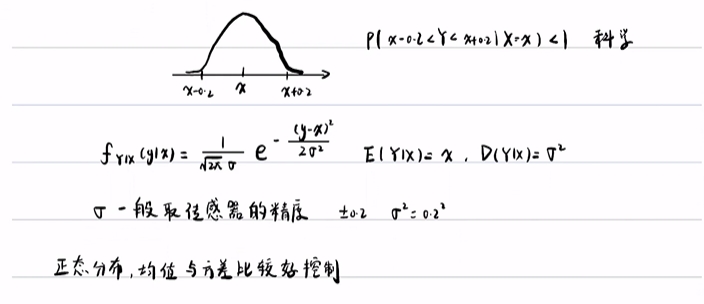 P(x-0.2<Y<x+0.2|X=x)<1 科学
x-0.2 x x+0.2
f_{Y|X}(y|x) = \frac{1}{\sqrt{2π} σ} e^{-\frac{(y-x)^2}{2σ^2}} E(Y|X)=x, D(Y|X)=σ²
σ 一般取传感器的精度 ±0.2 σ²=0.2²
正态分布,均值与方差比较好控制